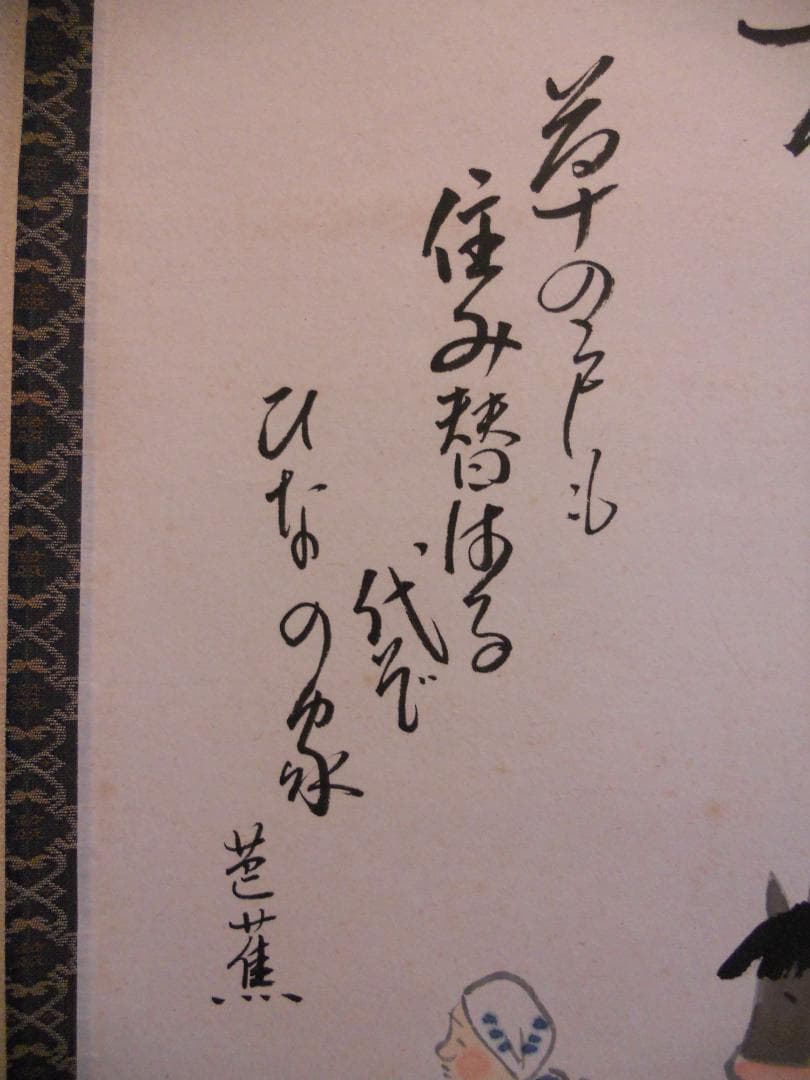 草の戸も
住み替はる
代ぞ
ひなの家
芭蕉